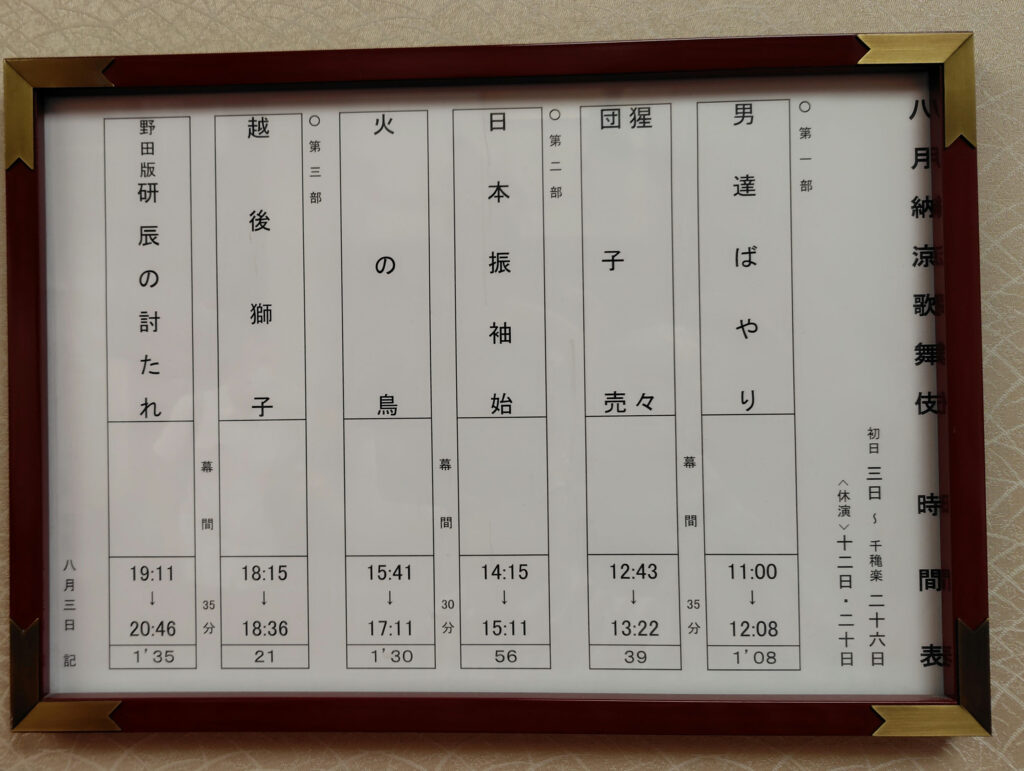 八月納涼歌舞伎 時間表
初日 三日 ~ 千穐楽 二十六日
<休演>十二日・二十日
○第一部
男達ばやり
11:00
↓
12:08
1'08
幕間 35分
猩々
団子売
12:43
↓
13:22
39
○第二部
日本振袖始
14:15
↓
15:11
56
幕間 30分
火の鳥
15:41
↓
17:11
1'30
○第三部
越後獅子
18:15
↓
18:36
21
幕間 35分
野田版 研辰の討たれ
19:11
↓
20:46
1'35
八月三日 記